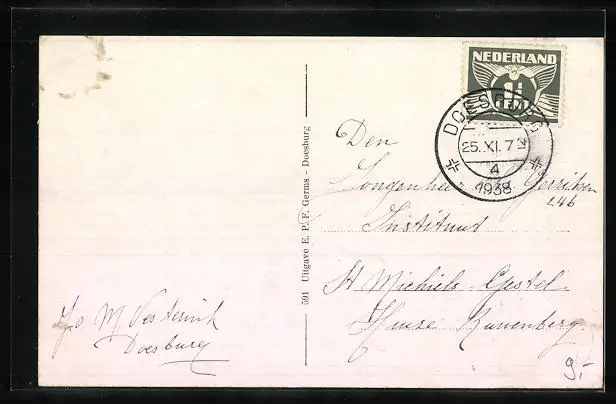 NEDERLAND
1½
DOESBURG
25.XI.7
4
1938
591 Uitgave E. P. F. Germs - Doesburg
Den
Instituut
St Michiels-Gestel.
Huize Ruwenberg.
Jos M Vesterink
Doesburg
9,-